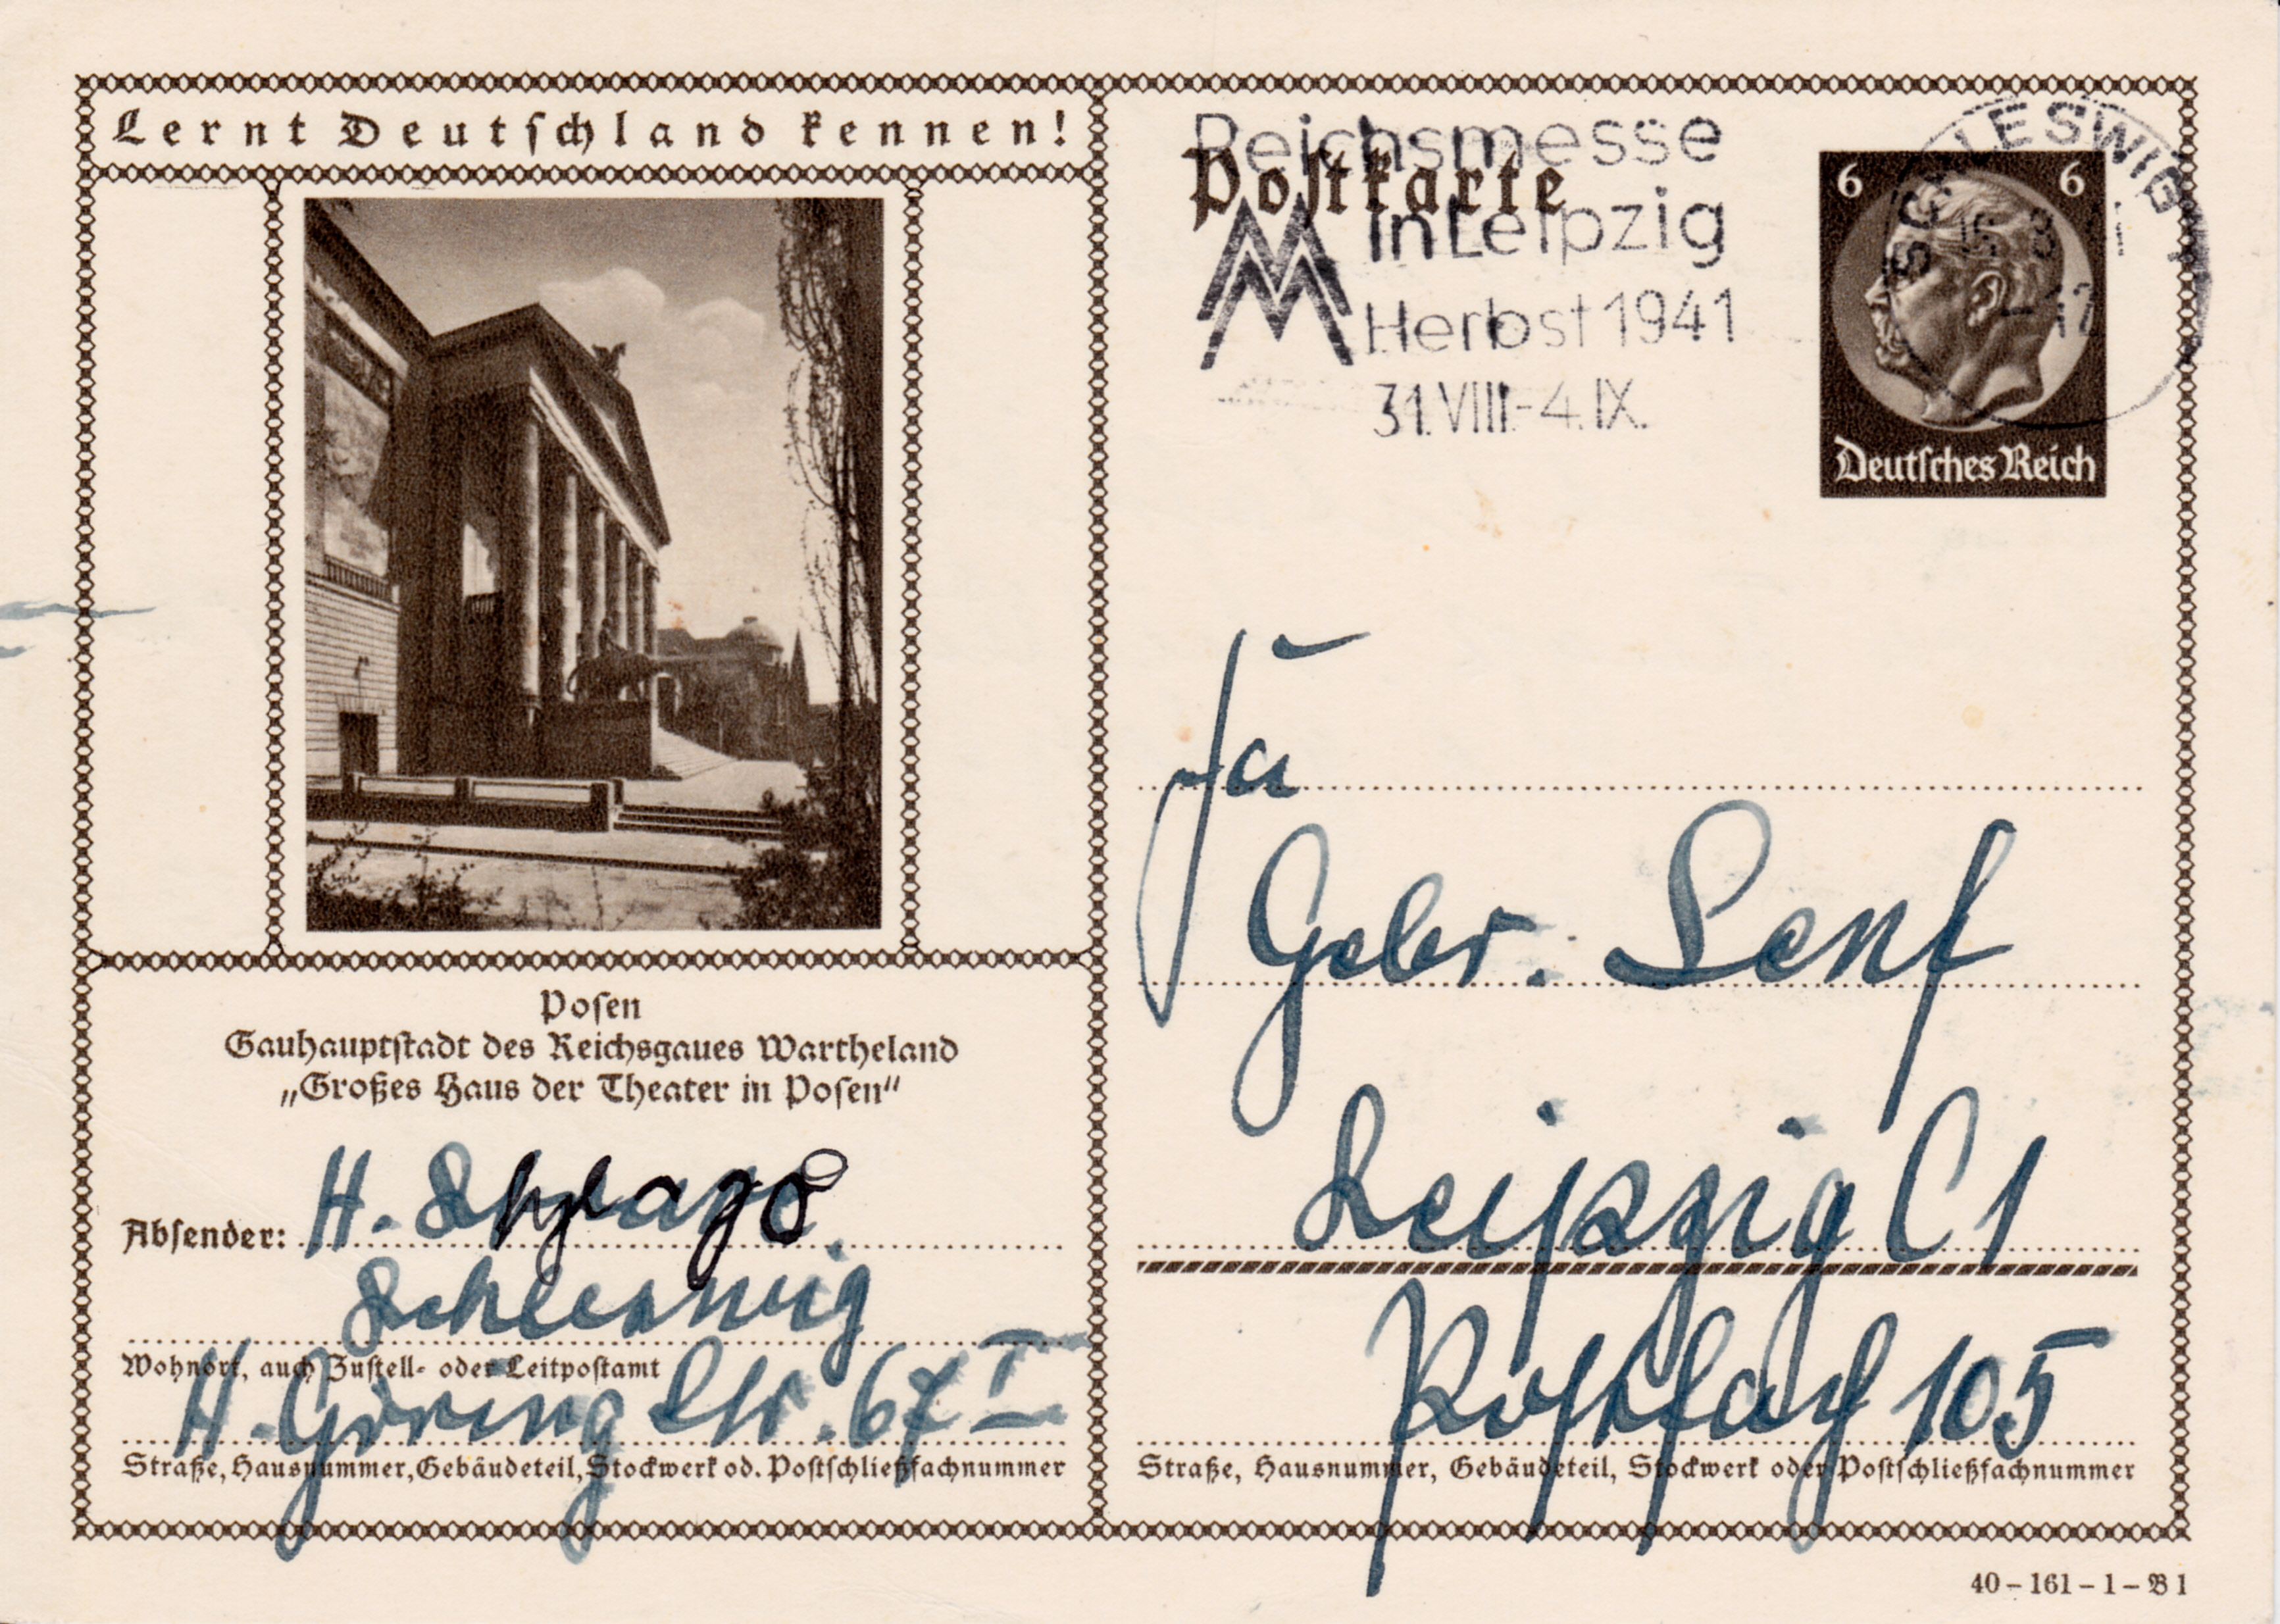 Lernt Deutschland kennen!
Posen
Gauhauptstadt des Reichsgaues Wartheland
„Großes Haus der Theater in Posen“
Absender: H.
Schleswig
Wohnort, auch Zustell- oder Leitpostamt
H. Göring Str. 67 I
Straße, Hausnummer, Gebäudeteil, Stockwerk od. Postschließfachnummer
Postkarte
Reichsmesse
in Leipzig
Herbst 1941
31.VIII.-4.IX.
SCHLESWIG
6 6
Deutsches Reich
Fa
Gebr. Senf
Leipzig C1
Postfach 105
Straße, Hausnummer, Gebäudeteil, Stockwerk oder Postschließfachnummer
40 - 161 - 1 - B 1